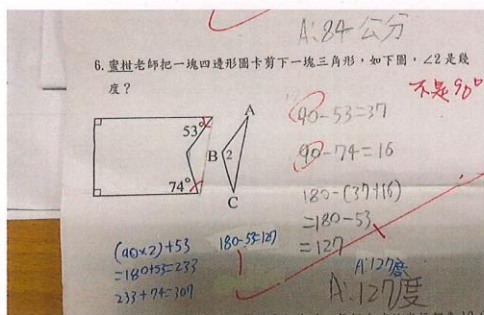 A:84公分
6.蜜柑老師把一塊四邊形圖卡剪下一塊三角形，如下圖，∠2是幾
度？
不是90°
A
53°
B 2
74°
C
90-53=37
90-74=16
180-(37+16)
=180-53
=127
A:127度
(90×2)+53
=180+53=233
233+74=307
180-53=127
A:127度